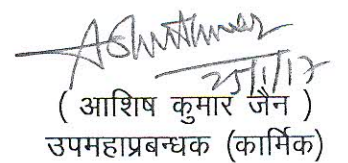 25/1/17
( आशिष कुमार जैन )
उपमहाप्रबन्धक (कार्मिक)